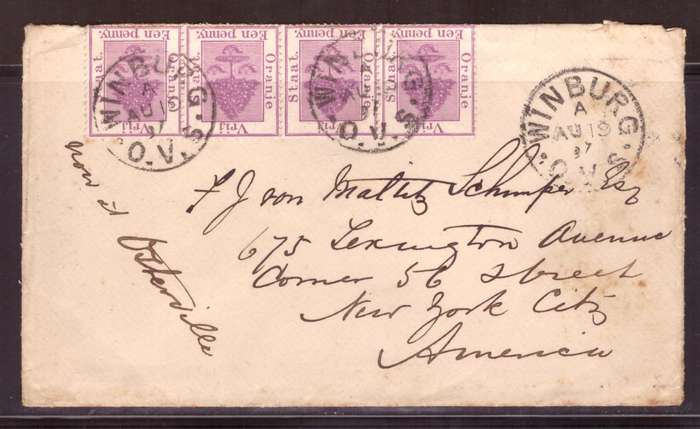 Een penny. Een penny. Een penny. Een penny.
Staat Oranje Staat Oranje Staat Oranje Staat Oranje
Vrij Vrij Vrij Vrij
WINBURG
A
AU 19
97
O.V.S.
WINBURG
A
AU 19
O.V.S.
WINBURG
A
AU 19
97
O.V.S.
now at Osterville
F J von Maltitz Schimper Esq
675 Lexington Avenue
Corner 56 street
New York City
America